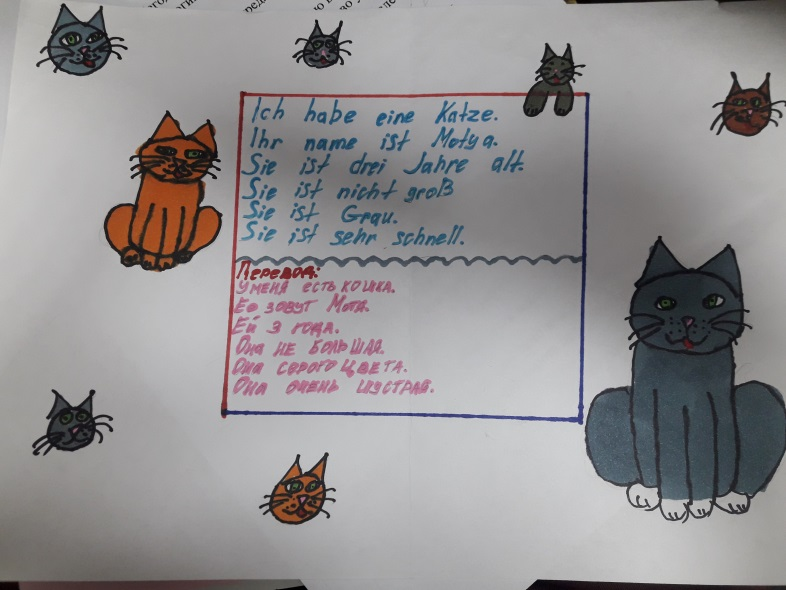 Ich habe eine Katze.
Ihr name ist Motya.
Sie ist drei Jahre alt.
Sie ist nicht groß
Sie ist Grau.
Sie ist sehr schnell.
Перевод:
У меня есть кошка.
Её зовут Мотя.
Ей 3 года.
Она не большая.
Она серого цвета.
Она очень шустрая.